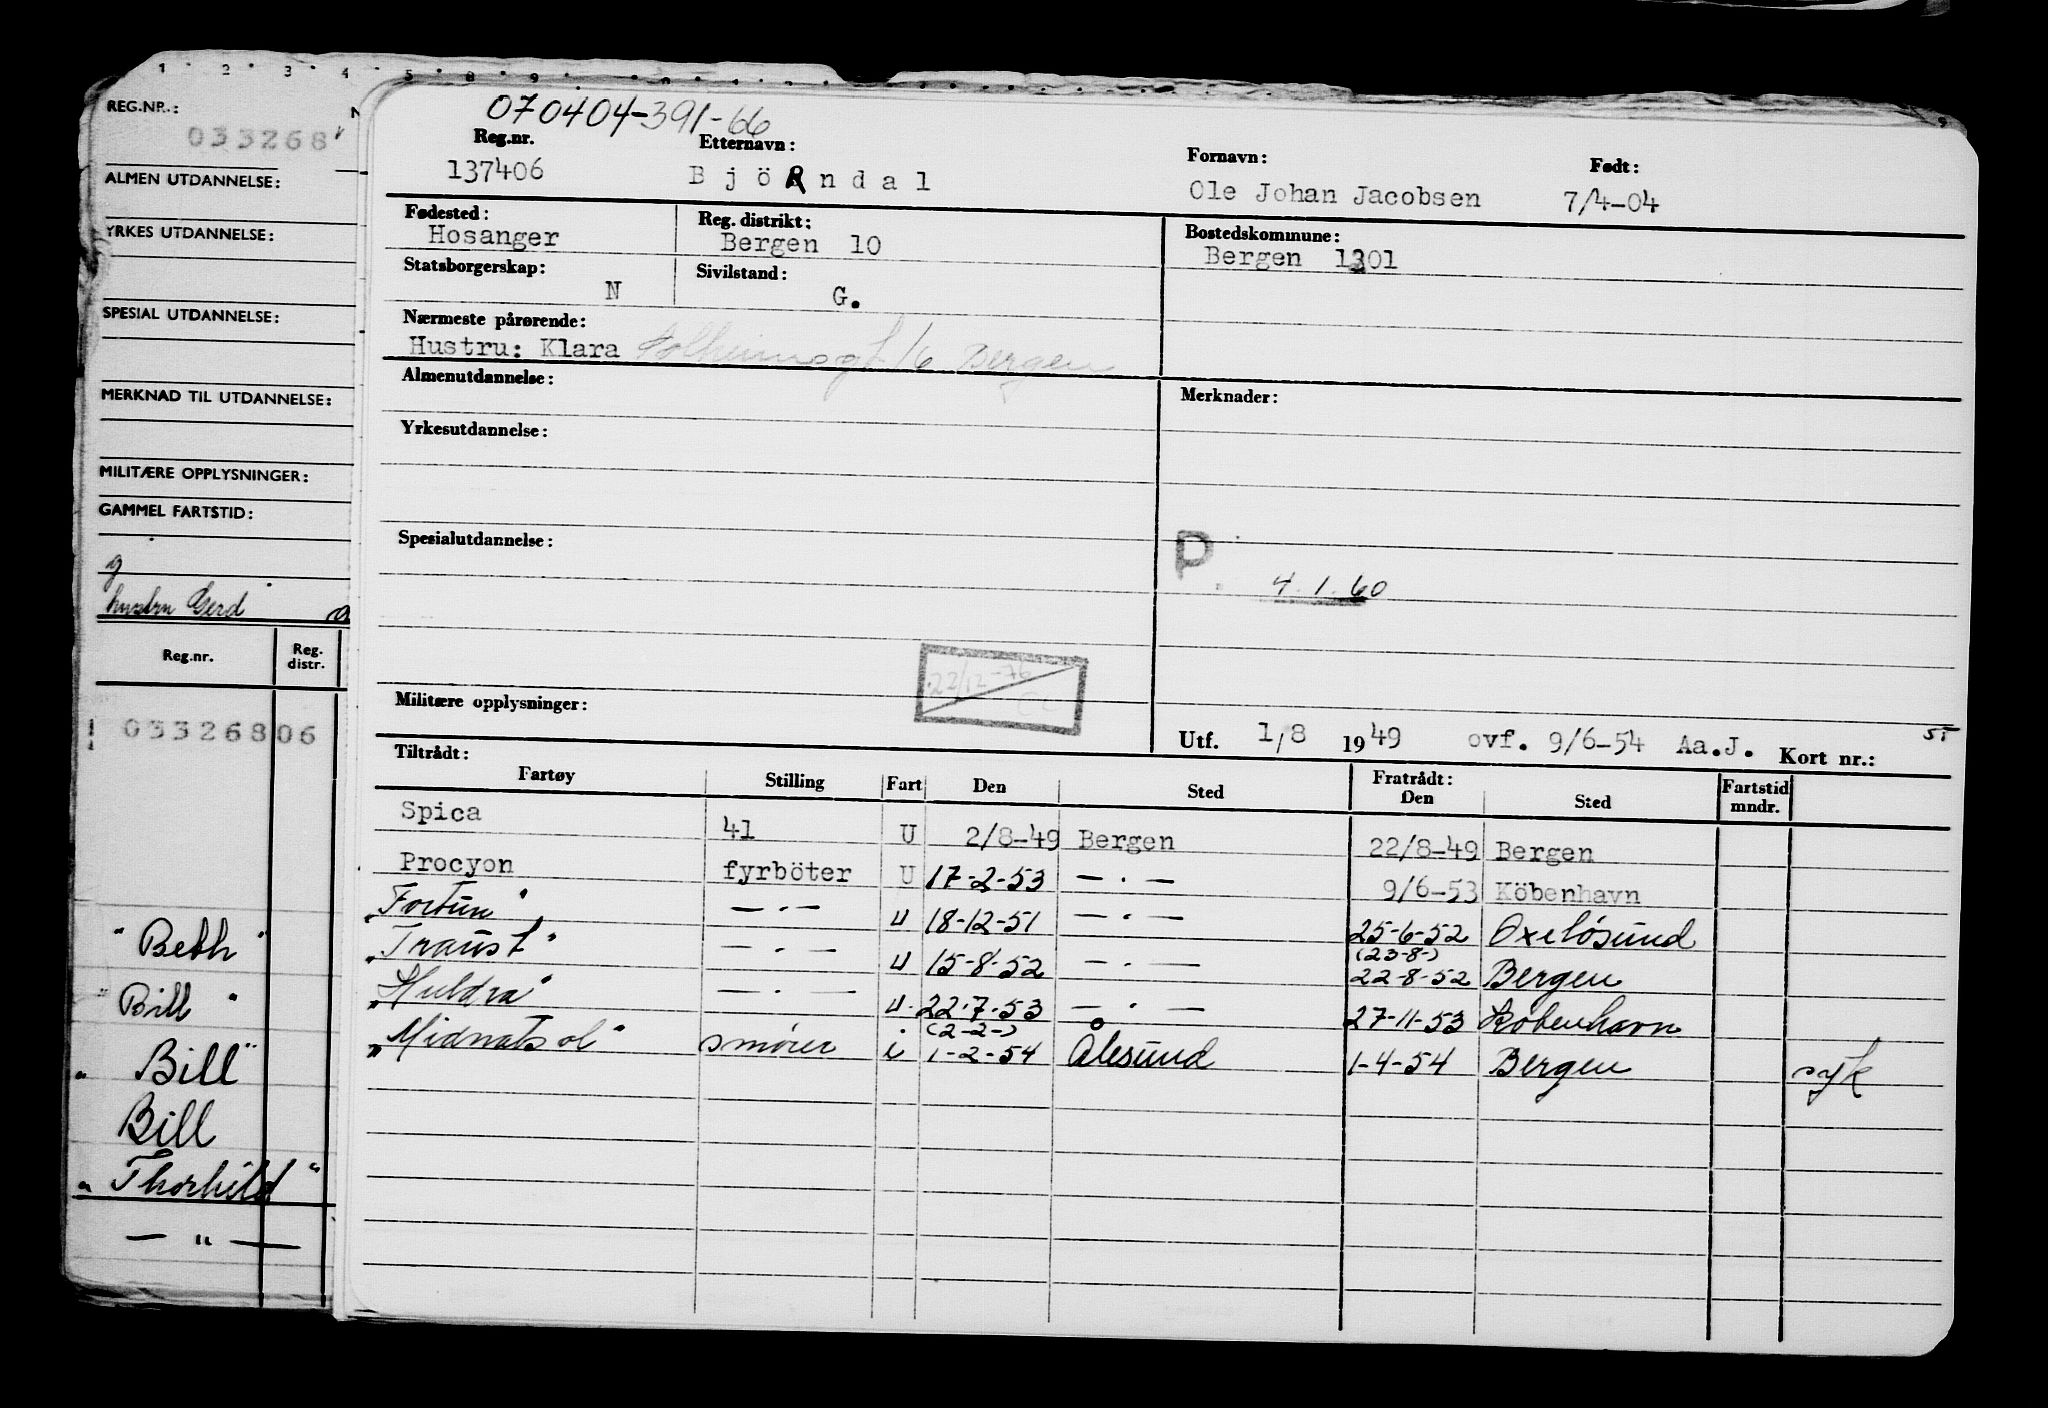 1 2 3 4 5 8 9
REG.NR.: N
033268
ALMEN UTDANNELSE:
YRKES UTDANNELSE:
SPESIAL UTDANNELSE:
MERKNAD TIL UTDANNELSE:
MILITÆRE OPPLYSNINGER:
GAMMEL FARTSTID:
g
hustru Gerd
Reg.nr. Reg. distr.
03326806
"Beth"
"Bill"
"Bill"
Bill
"Thorhild"
— " —
070404-391-66
Reg.nr. Etternavn: Fornavn: Født:
137406 Bjørndal Ole Johan Jacobsen 7/4-04
Fødested: Reg. distrikt: Bostedskommune:
Hosanger Bergen 10 Bergen 1301
Statsborgerskap: Sivilstand:
N G.
Nærmeste pårørende:
Hustru: Klara Solheimsgt 16 Bergen
Almenutdannelse: Merknader:
Yrkesutdannelse:
Spesialutdannelse: P.
4.1.60
22/12-76
Militære opplysninger:
Utf. 1/8 1949 ovf. 9/6-54 Aa.J. Kort nr.: 55
Tiltrådt: Fratrådt:
Fartøy Stilling Fart Den Sted Den Sted Fartstid mndr.
Spica 41 U 2/8-49 Bergen 22/8-49 Bergen
Procyon fyrböter U 17-2-53 — . — 9/6-53 Köbenhavn
"Fortun" — . — u 18-12-51 — . — 25-6-52 Oxeløsund
"Traust" — . — u 15-8-52 — . — (23-8-) 22-8-52 Bergen
"Huldra" — . — u. 22.7.53 — . — 27-11-53 København
"Midnatsol" smører i (2-2-) 1-2-54 Ålesund 1-4-54 Bergen syk